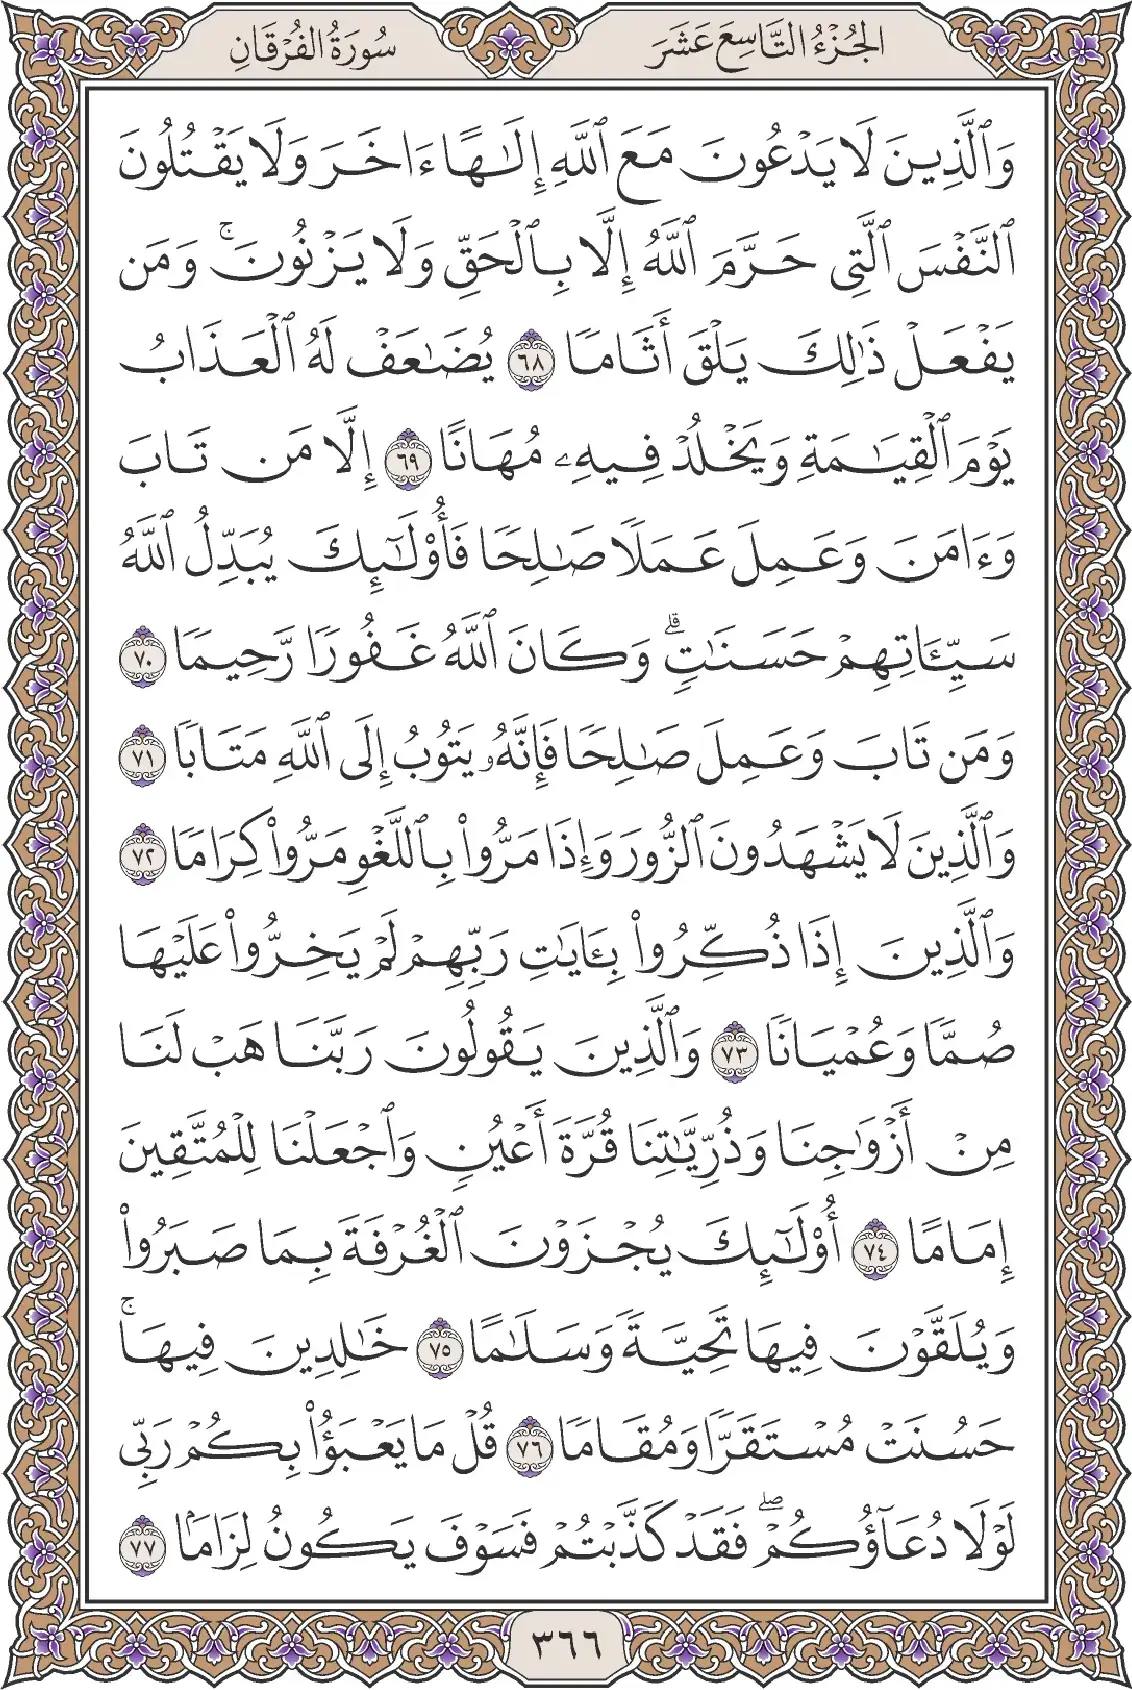 الجُزْءُ التَّاسِعَ عَشَرَ
سُورَةُ الفُرْقَانِ
وَٱلَّذِينَ لَا يَدْعُونَ مَعَ ٱللَّهِ إِلَـٰهًا ءَاخَرَ وَلَا يَقْتُلُونَ
ٱلنَّفْسَ ٱلَّتِى حَرَّمَ ٱللَّهُ إِلَّا بِٱلْحَقِّ وَلَا يَزْنُونَ ۚ وَمَن
يَفْعَلْ ذَٰلِكَ يَلْقَ أَثَامًا ٦٨ يُضَـٰعَفْ لَهُ ٱلْعَذَابُ
يَوْمَ ٱلْقِيَـٰمَةِ وَيَخْلُدْ فِيهِۦ مُهَانًا ٦٩ إِلَّا مَن تَابَ
وَءَامَنَ وَعَمِلَ عَمَلًا صَـٰلِحًا فَأُو۟لَـٰٓئِكَ يُبَدِّلُ ٱللَّهُ
سَيِّـَٔاتِهِمْ حَسَنَـٰتٍ ۗ وَكَانَ ٱللَّهُ غَفُورًا رَّحِيمًا ٧٠
وَمَن تَابَ وَعَمِلَ صَـٰلِحًا فَإِنَّهُۥ يَتُوبُ إِلَى ٱللَّهِ مَتَابًا ٧١
وَٱلَّذِينَ لَا يَشْهَدُونَ ٱلزُّورَ وَإِذَا مَرُّوا۟ بِٱللَّغْوِ مَرُّوا۟ كِرَامًا ٧٢
وَٱلَّذِينَ إِذَا ذُكِّرُوا۟ بِـَٔايَـٰتِ رَبِّهِمْ لَمْ يَخِرُّوا۟ عَلَيْهَا
صُمًّا وَعُمْيَانًا ٧٣ وَٱلَّذِينَ يَقُولُونَ رَبَّنَا هَبْ لَنَا
مِنْ أَزْوَٰجِنَا وَذُرِّيَّـٰتِنَا قُرَّةَ أَعْيُنٍ وَٱجْعَلْنَا لِلْمُتَّقِينَ
إِمَامًا ٧٤ أُو۟لَـٰٓئِكَ يُجْزَوْنَ ٱلْغُرْفَةَ بِمَا صَبَرُوا۟
وَيُلَقَّوْنَ فِيهَا تَحِيَّةً وَسَلَـٰمًا ٧٥ خَـٰلِدِينَ فِيهَا ۚ
حَسُنَتْ مُسْتَقَرًّا وَمُقَامًا ٧٦ قُلْ مَا يَعْبَؤُا۟ بِكُمْ رَبِّى
لَوْلَا دُعَآؤُكُمْ ۖ فَقَدْ كَذَّبْتُمْ فَسَوْفَ يَكُونُ لِزَامًۢا ٧٧
٣٦٦